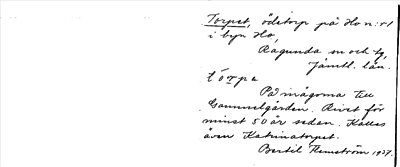 Torpet, ödetorp på Ho n:r 1
i byn Ho,
Ragunda sn och tg,
Jämtl. län.
tórpe
På mågorna till
Gammelgården. Rivet för
minst 50 år sedan. Kallas
även Katrinatorpet.
Bertil Flemström 1937.